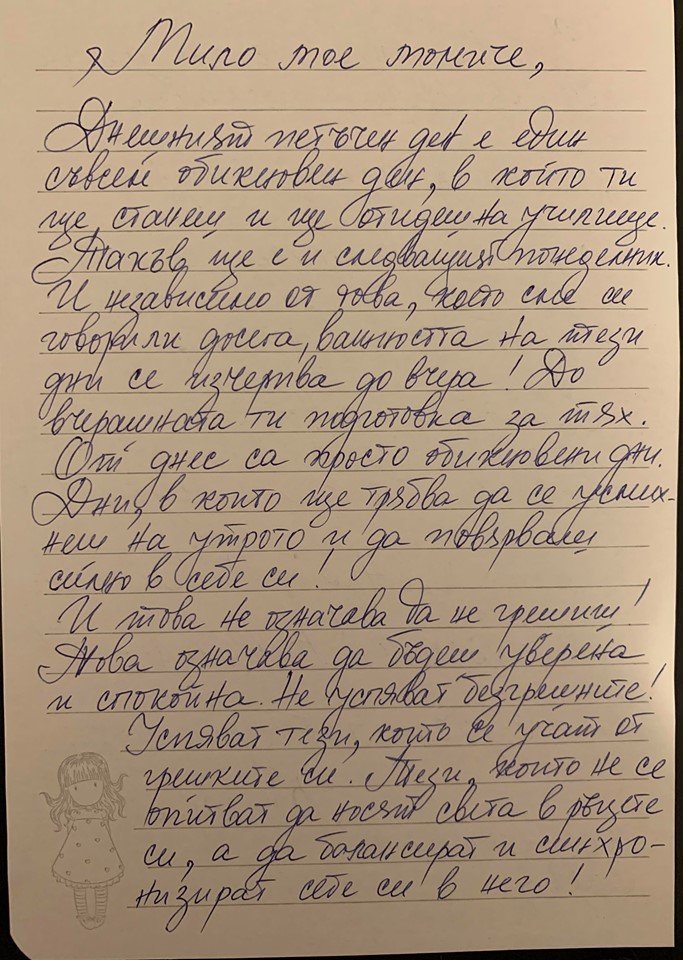 Мило мое момиче,
Днешният петъчен ден е един
съвсем обикновен ден, в който ти
ще станеш и ще отидеш на училище.
Такъв ще е и следващият понеделник.
И независимо от това, което сме си
говорили досега, важността на тези
дни се изчерпва до вчера! До
вчерашната ти подготовка за тях.
От днес са просто обикновени дни.
Дни, в които ще трябва да се усмих-
неш на утрото и да повярваш
силно в себе си!
И това не означава да не грешиш!
Това означава да бъдеш уверена
и спокойна. Не успяват безгрешните!
Успяват тези, които се учат от
грешките си. Тези, които не се
опитват да носят света в ръцете
си, а да балансират и синхро-
низират себе си в него!